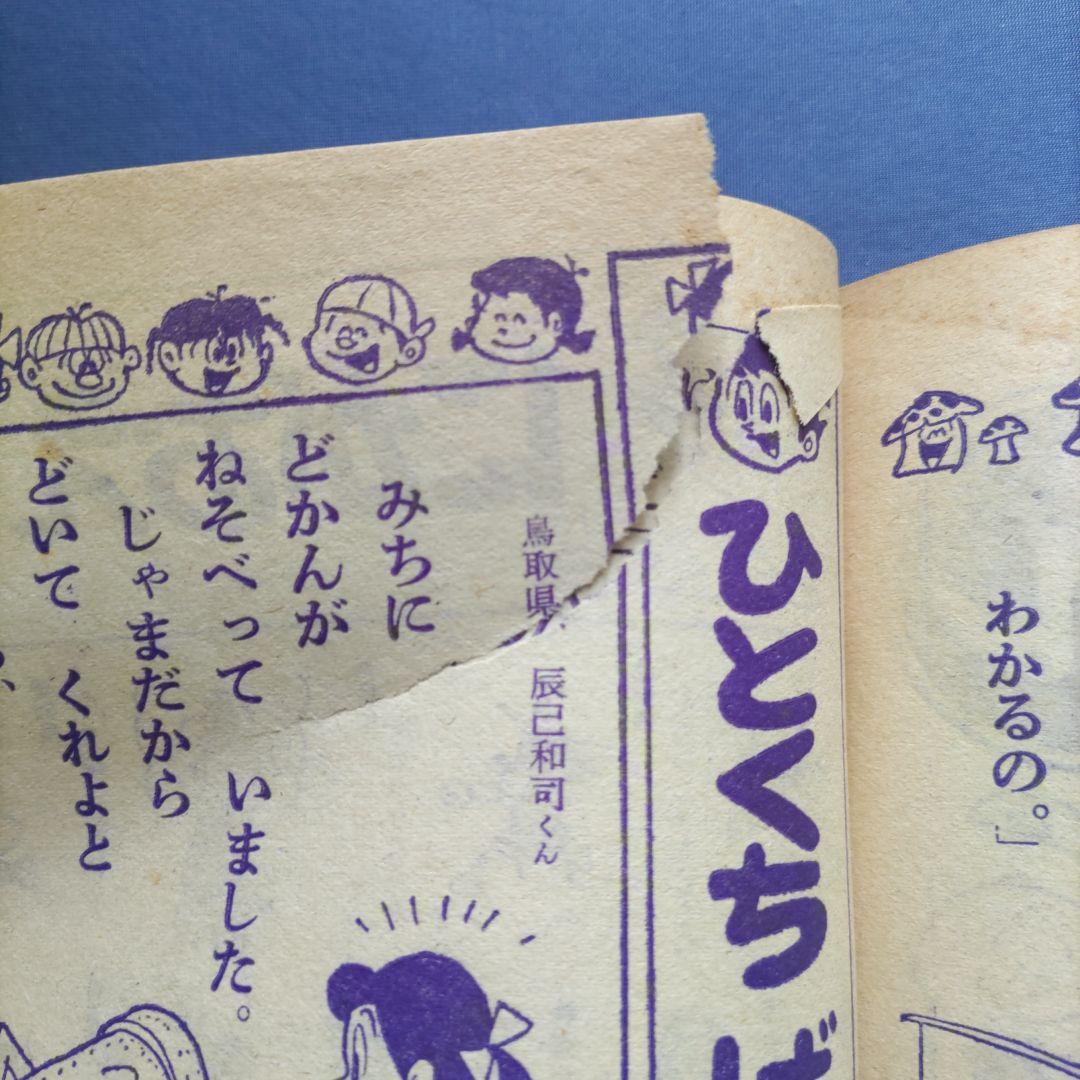 わかるの。」
ひとくちば
鳥取県　辰己和司くん
みちに
どかんが
ねそべって　いました。
じゃまだから
どいて　くれよと